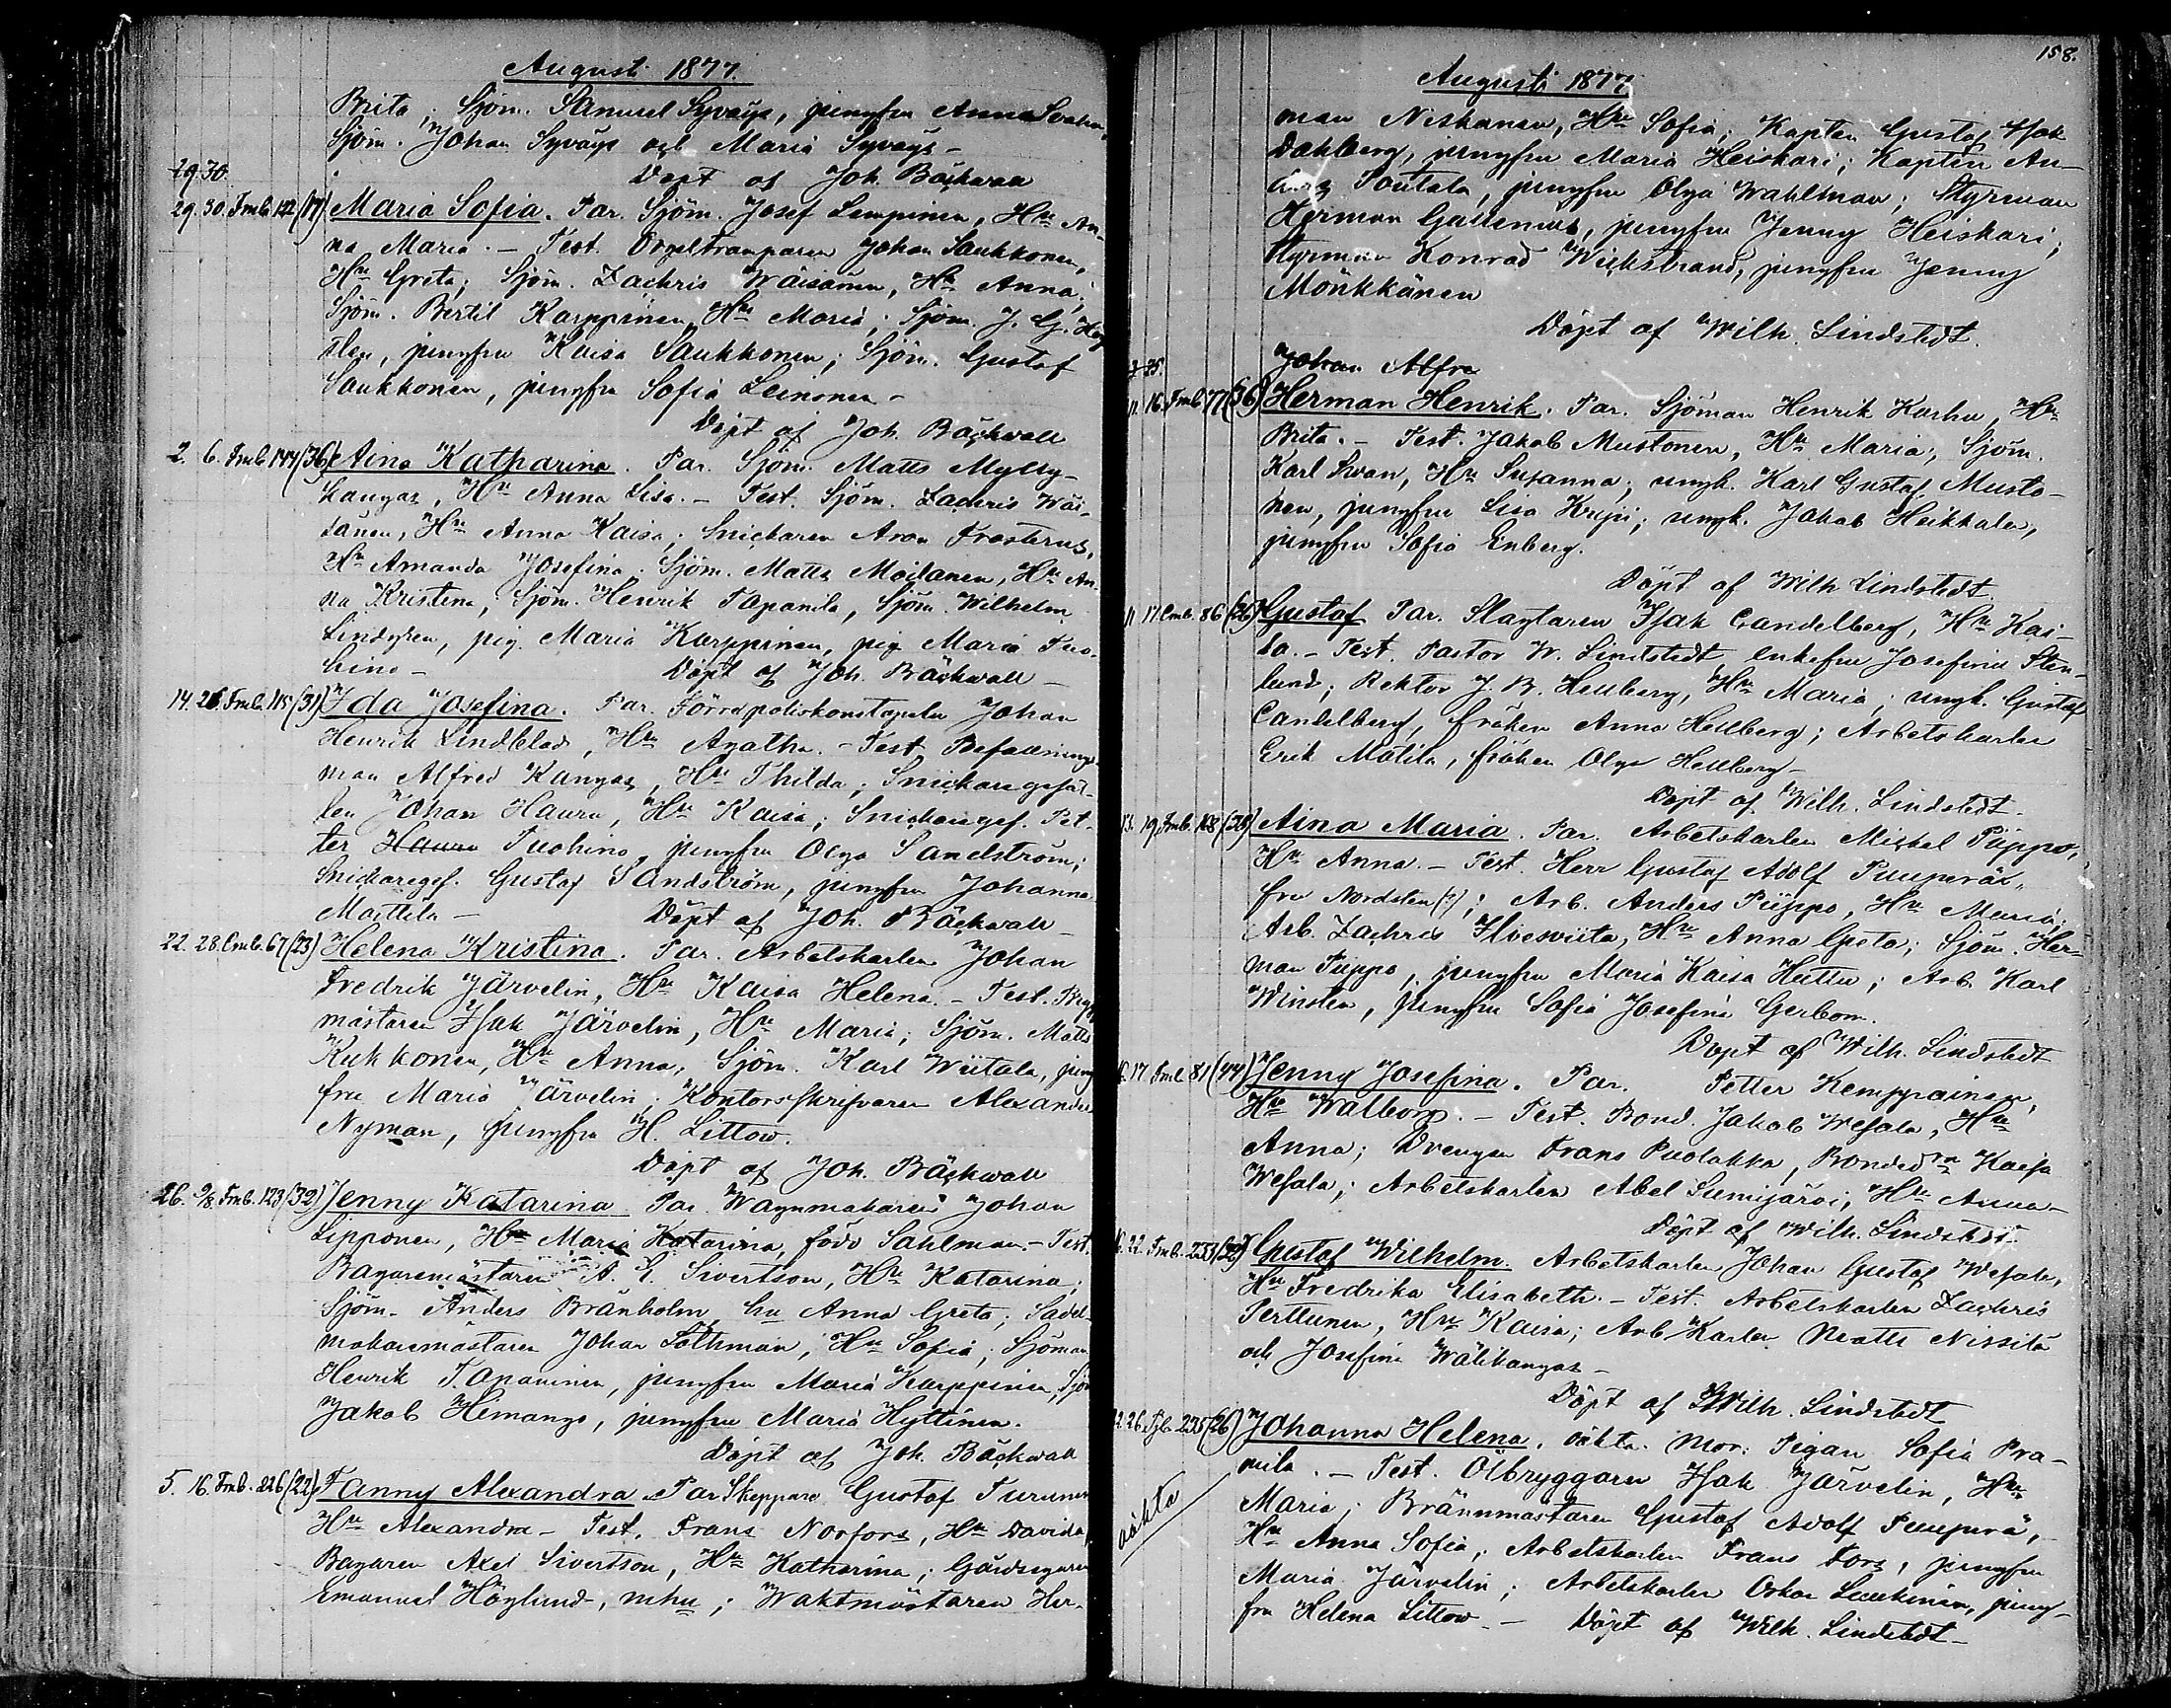 Augusti 1877.
Brita; Sjöm. Samuel Syväys, jungfru Anna
Sjöm. Johan Syväys och Maria Syväys -
29.30. Döpt af Joh. Bäckwall
29. 30. Fmb. 122 (17) Maria Sofia. Par. Sjöm. Josef Lempinen, Hu An-
na Maria. - Test. Orgeltramparen Johan Saukkonen,
Hu Greta; Sjöm. Zachris Wäisänen, Hu Anna;
Sjöm. Bertil Karppinen, Hu Maria; Sjöm. J. G.
jungfru Kaisa Saukkonen; Sjöm. Gustaf
Saukkonen, jungfru Sofia Leinonen -
Döpt af Joh. Bäckwall
2. 6. Fmb. 144 (36) Aina Katharina. Par. Sjöm. Matts Mylly-
kangas, Hu Anna Lisa. - Test. Sjöm. Zachris Wäi-
sänen, Hu Anna Kaisa; Snickaren Aron Frosterus,
Hu Amanda Josefina; Sjöm. Matts Moilanen, Hu An-
na Kristina; Sjöm. Henrik Tapanila, Sjöm. Wilhelm
Lindgren, pig. Maria Karppinen, pig. Maria Tuo-
hino - Döpt af Joh. Bäckwall -
14. 26. Fmb. 115 (31) Ida Josefina. Par. Förrepoliskonstapeln Johan
Henrik Lindblad, Hu Agatha. - Test. Befallnings-
man Alfred Kangas, Hu Thilda; Snickaregesäl-
len Johan Hauru, Hu Kaisa; Snickaregef. Pet-
ter Hauru Tuohino, jungfru Olga Sandström;
Snickaregef. Gustaf Sandström, jungfru Johanna
Mattila - Döpt af Joh. Bäckwall -
22. 28. Cmb. 67 (23) Helena Kristina. Par. Arbetskarlen Johan
Fredrik Järvelin, Hu Kaisa Helena. - Test. Bryg-
mästaren Isak Järvelin, Hu Maria; Sjöm. Matts
Kukkonen, Hu Anna; Sjöm. Karl Wiitala, jung-
fru Maria Järvelin; Kontorsskrifvaren Alexander
Nyman, jungfru H. Littow.
Döpt af Joh. Bäckwall
26. 9/8. Fmb. 123 (32) Jenny Katarina Par. Wagnmakaren Johan
Lipponen, Hu Maria Katarina, född Sahlman. - Test.
Bagaremästaren A. E. Sivertson, Hu Katarina;
Sjöm. Anders Bränholm, hu Anna Greta; Sadel-
makaremästaren Johan Söthman, Hu Sofia; Sjöman
Henrik Tapaninen, jungfru Maria Karppinen, Sjöm
Jakob Himango, jungfru Maria Hyttinen.
Döpt af Joh. Bäckwall
5. 16. Fmb. 226 (22) Fanny Alexandra Par Skeppare Gustaf Turunen
Hu Alexandra - Test. Frans Norfors, Hu Davida,
Bagaren Axel Sivertson, Hu Katharina; Gårdsegaren
Emanuel Höglund, m hu; Waktmästaren Her-
158.
Augusti 1877.
man Niskanen, Hu Sofia; Kapten Gustaf Isak
Dahlberg, jungfru Maria Heiskari; Kapten An-
ders Soutala, jungfru Olga Wahlman; Styrman
Herman Gallenius, jungfru Jenny Heiskari;
Styrman Konrad Wickstrand, jungfru Jenny
Mönkkönen
Döpt af Wilh. Lindstedt.
Johan Alfre
11. 16. Fmb. 77 (36) Herman Henrik. Par. Sjöman Henrik Karhu, Hu
Brita. - Test. Jakob Mustonen, Hu Maria; Sjöm.
Karl Swan, Hu Susanna; ungk. Karl Gustaf Musto-
nen, jungfru Lisa ; ungk. Jakob Heikkala,
jungfru Sofia Enberg.
Döpt af Wilh Lindstedt.
11 17. Cmb. 86 (26) Gustaf Par. Slagtaren Isak Candelberg, Hu Kai-
sa. - Test. Pastor W. Lindstedt, enkefru Josefina Sten-
lund; Rektor J. B. Hellberg, Hu Maria; ungk. Gustaf
Candelberg, fröken Anna Hellberg; Arbetskarlen
Erik Matila, fröken Olga Hellberg -
Döpt af Wilh. Lindstedt.
13. 19. Fmb. 168 (28) Aina Maria. Par. Arbetskarlen Mickel Piippo,
Hu Anna. - Test. Herr Gustaf Adolf Puuperä,
fru Nordsten (?); Arb. Anders Piippo, Hu Maria;
Arb. Zachris Hoeswiita, Hu Anna Greta; Sjöm. Her-
man Piippo, jungfru Maria Kaisa Huttu; Arb. Karl
Winsten, jungfru Sofia Josefina Gerbom.
Döpt af Wilh. Lindstedt
16. 17 Fmb. 81 (44) Jenny Josefina. Par. Petter Kemppainen,
Hu Walborg. - Test. Bond. Jakob Wesala, Hu
Anna; Drengen Frans Puolakka, Bonded:n Kaisa
Wesala; Arbetskarlen Abel Sumijärvi, Hu Anna -
Döpt af Wilh. Lindstedt.
16. 22. Fmb. 233 (32) Gustaf Wilhelm. Arbetskarlen Johan Gustaf Wesala,
Hu Fredrika Elisabeth. - Test. Arbetskarlen Zachris
Perttunen, Hu Kaisa; Arb. Karlen Matts Nissilä
och Josefina Wälikangas -
Döpt af Wilh. Lindstedt
22. 26. Sjb. 235 (26) Johanna Helena, oäkta. Mor: Pigan Sofia Pra-
mila. - Test. Ölbryggaren Isak Järvelin, Hu
oäkta
Maria; Brännmästaren Gustaf Adolf Puuperä,
Hu Anna Sofia; Arbetskarlen Frans Fors, jungfru
Maria Järvelin; Arbetskarlen Oskar Leukinen, jung-
fru Helena Littow. - Döpt af Wilh. Lindstedt -